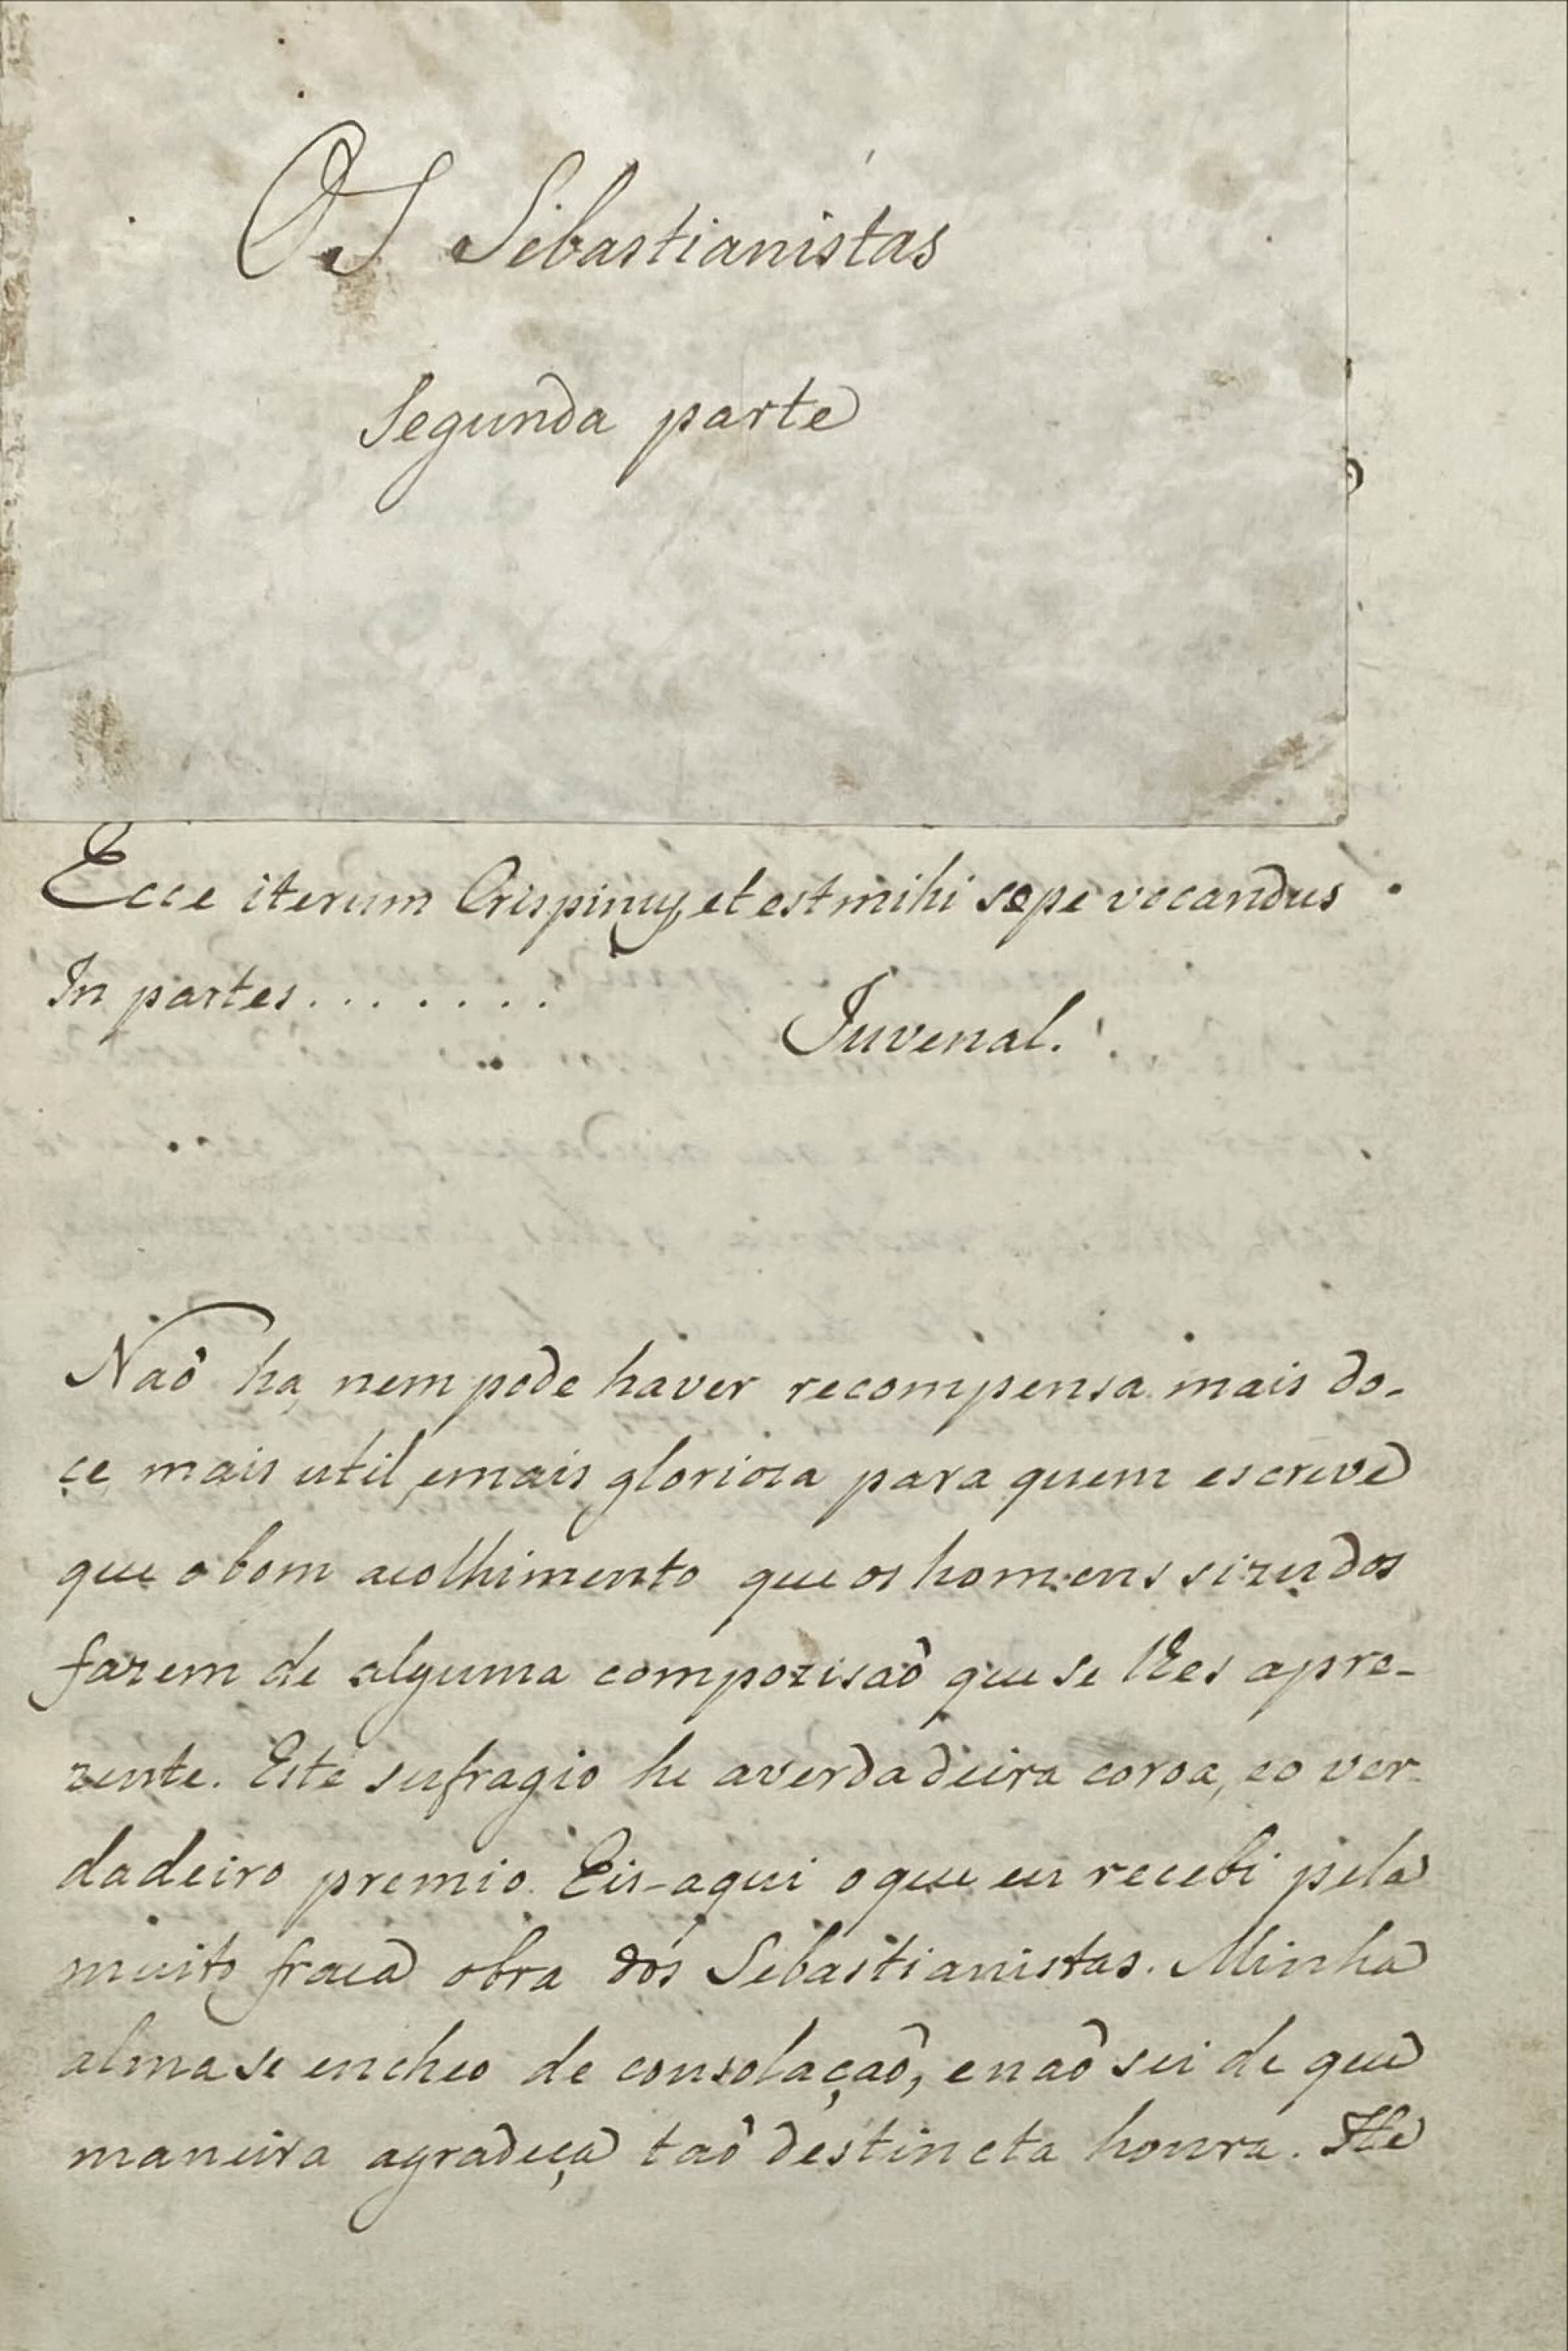 Os Sebastianistas
Segunda parte
Ecce iterum Crispinus, et est mihi sepe vocandus
In partes........
Juvenal.
Naõ ha, nem pode haver recompensa mais do-
ce mais util, emais glorioza para quem escreve
que obom acolhimento que os homens sizudos
fazem de alguma compozisaõ que se lhes apre-
zente. Este sufragio he averdadeira coroa, eo ver-
dadeiro premio. Eis-aqui oque eu recebi pela
muito fraca obra dos Sebastianistas. Minha
alma se encheo de consolaçaõ, enaõ sei de que
maneira agradeça taõ destincta honra. He